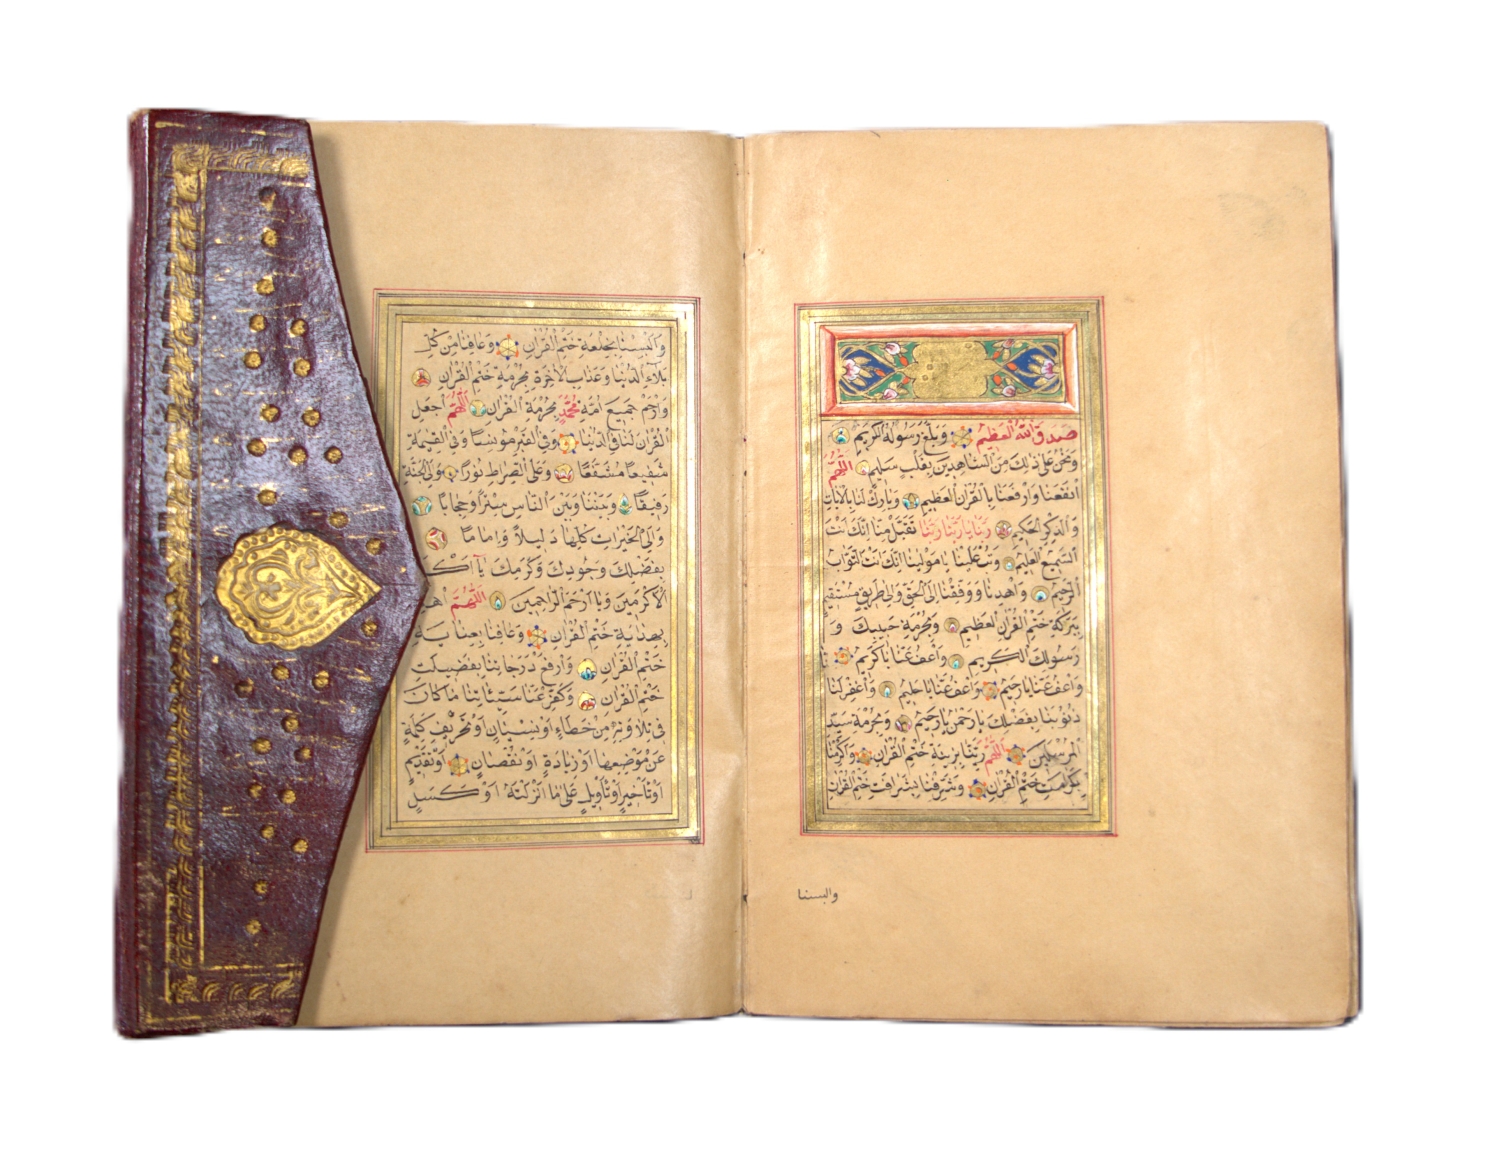 صدق الله العظيم وبلغ رسوله الكريم
ونحن على ذلك من الشاهدين بقلب سليم اللهم
انفعنا وارفعنا بالقران العظيم وبارك لنا بالايات
والذكر الحكيم ربنا يا ربنا ربنا تقبل منا انك انت
السميع العليم وتب علينا يا مولينا انك انت التواب
الرحيم واهدنا ووفقنا الى الحق والى طريق مستقيم
ببركة ختم القران العظيم وبحرمة حبيبك و
رسولك الكريم واعف عنا يا كريم
واعف عنا يا رحيم واعف عنا يا حليم واغفر لنا
ذنوبنا بفضلك يا رحمن يا رحيم وبحرمة سيد
المرسلين اللهم زينا بزينة ختم القران واكرمنا
بكرامت ختم القران وشرفنا بشرافت ختم القران
والبسنا
والبسنا بخلعة ختم القران وعافنا من كل
بلاء الدنيا وعذاب الاخرة بحرمة ختم القران
وارحم جميع امة محمد بحرمة القران اللهم اجعل
القران لنا في الدنيا وفي القبر مونسا وفي القيمة
شفيعا مشفعا وعلى الصراط نورا وفي الجنة
رفيقا وبيننا وبين الناس سترا وحجابا
والى الخيرات كلها دليلا واماما
بفضلك وجودك وكرمك يا اك
الاكرمين ويا ارحم الراحمين اللهم اهد
بهداية ختم القران وعافنا بعناية
ختم القران وارفع درجاتنا بفضيلت
ختم القران وكفر عنا سيئاتنا ما كان
في تلاوته من خطاء او نسيان او تحريف كلمة
عن موضعها او زيادة او نقصان او تقديم
او تأخير او تأويل على ما انزلته او كسل